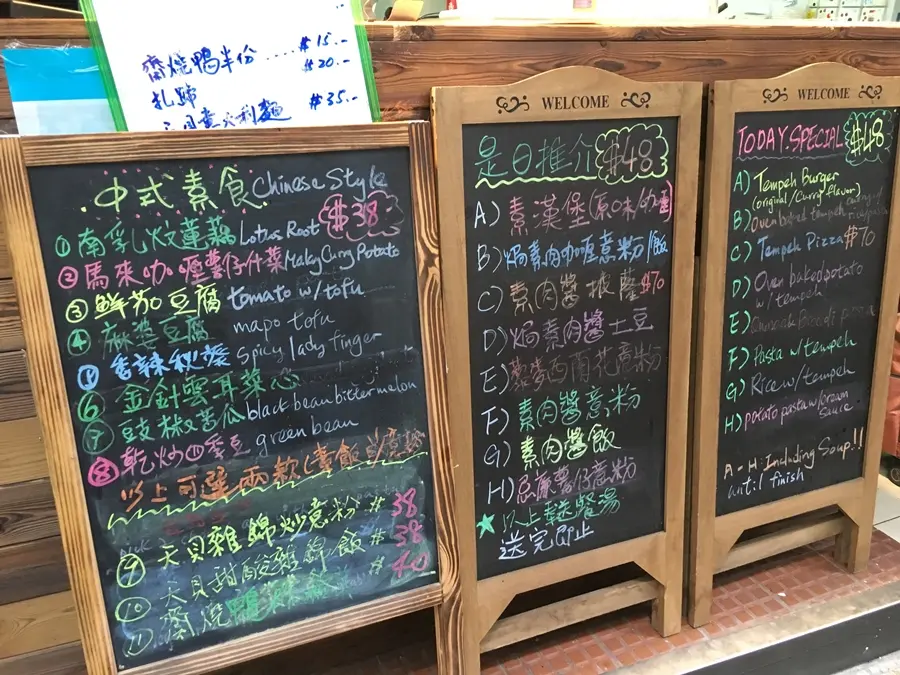 齋燒鴨半份....$15.-
扎蹄 $20.-
天貝意大利麵 $35.-
中式素食 Chinese Style
$38
①南乳炆蓮藕 Lotus Root
②馬來咖喱薯仔什菜 Maky Curry Potato
③鮮茄豆腐 tomato w/ tofu
④麻婆豆腐 mapo tofu
⑤香辣秋葵 spicy lady finger
⑥金針雲耳菜心
⑦豉椒苦瓜 black bean bitter melon
⑧乾炒四季豆 green bean
以上可選兩款(素飯
⑨天貝雜錦炒意粉 $38
⑩天貝甜酸雜錦飯 $38
⑪齋燒 $40
WELCOME
是日推介 $48
A)素漢堡(原味/咖喱
B)焗素肉咖喱意粉/飯
C)素肉醬披薩 $70
D)焗素肉醬土豆
E)藜麥西蘭花意粉
F)素肉醬意粉
G)素肉醬飯
H)忌廉薯仔意粉
★以上轉餐湯
送完即止
WELCOME
TODAY.SPECIAL $48
A) Tempeh Burger
(original/Curry flavor)
B) Oven baked tempeh
C) Tempeh Pizza $70
D) Oven baked potato
w/ tempeh
E)
F) Pasta w/ tempeh
G) Rice w/ tempeh
H) potato pasta w/ cream
sauce
A-H Including Soup!!
until finish